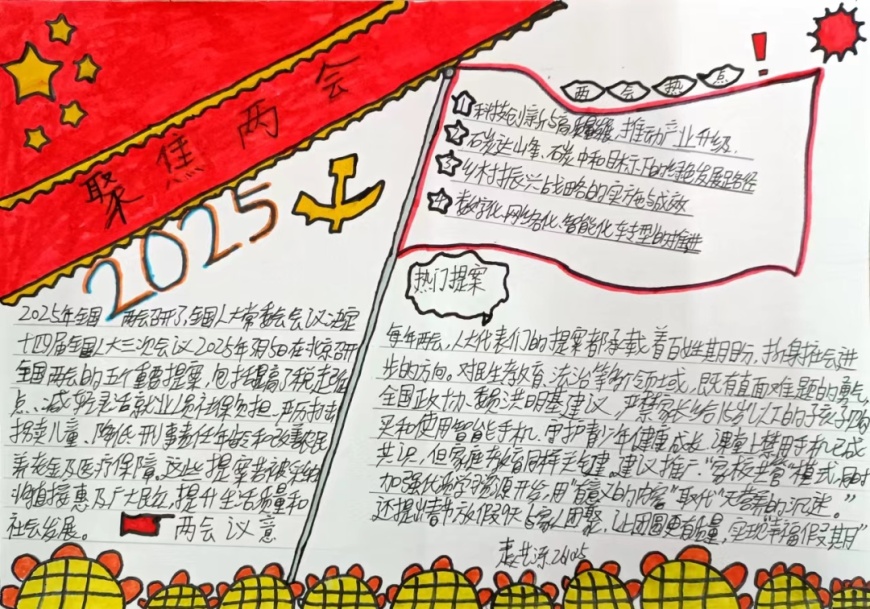 聚焦两会
2025
两会热点
科技创新与高质量发展,推动产业升级.
碳达山峰、碳中和目标下的绿色发展路径
乡村振兴战略的实施与成效
数字化、网络化、智能化转型的推进
热门提案
2025年全国两会召开了,全国人大常委会会议决定
十四届全国人大三次会议2025年3月5日在北京召开
全国两会的五个重要提案,包括提高个税起征
点、减轻灵活就业人员社保负担、严厉打击
拐卖儿童、降低刑事责任年龄和改善农民
养老金及医疗保障。这些提案都
将直接惠及广大民众,提升生活质量和
社会发展。
两会议意
每年两会,人大代表们的提案都承载着百姓期盼,折射社会进
步的方向。对民生教育、法治等领域,既有直面难题的勇气
全国政协、魏洪明基建议,严禁家长给16岁以下的孩子购
买和使用智能手机,守护青少年健康成长,课堂上禁用手机已成
共识,但家庭教育同样关键。建议推广“家校共管”模式,同时
加强优质学习资源开发,用“有意义的内容”取代“无营养的沉迷。”
还提出春节放假9天与家人团聚,让团圆更有质量,实现“幸福假期”